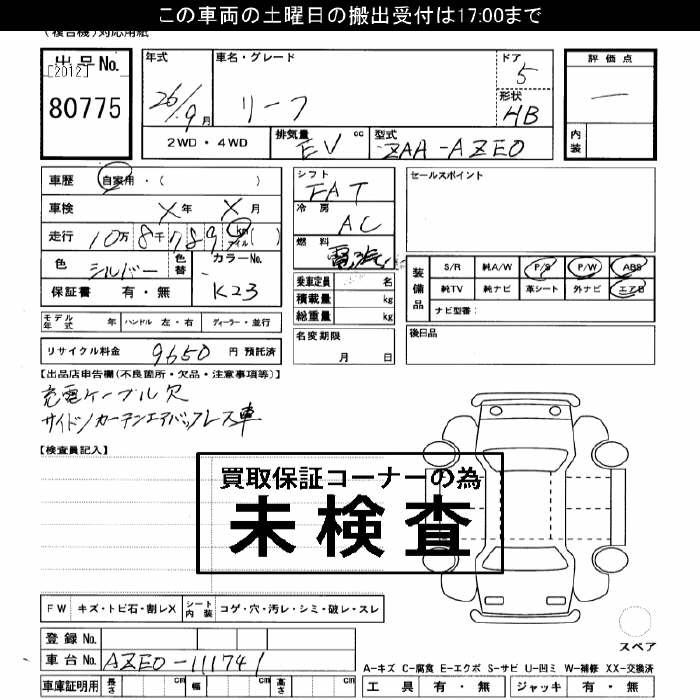 この車両の土曜日の搬出受付は17:00まで
(複合機)対応用紙
出品No. [2012]
80775
年式 26/9月
車名・グレード リーフ
ドア 5
形状 HB
2WD・4WD
排気量 EV cc
型式 ZAA-AZE0
評価点 —
内装
車歴 自家用・( )
車検 X年 X月
走行 10万8千789 km マイル( )
色 シルバー 色替 カラーNo. K23
保証書 有・無
シフト FAT
冷房 AC
燃料 電気
乗車定員 名
積載量 kg
総重量 kg
セールスポイント
装備品 S/R 純A/W P/S P/W ABS
純TV 純ナビ 革シート 外ナビ エアB
ナビ型番:
モデル年式 年 ハンドル 左・右 ディーラー・並行
名変期限 月 日
後日品
リサイクル料金 9650 円 預託済
【出品店申告欄(不良箇所・欠品・注意事項等)】
充電ケーブル欠
サイド/カーテンエアバッグレス車
【検査員記入】
買取保証コーナーの為
未検査
FW キズ・トビ石・割レX シート内装 コゲ・穴・汚レ・シミ・破レ・スレ
登録No.
車台No. AZE0-111741
スペア
A-キズ C-腐食 E-エクボ S-サビ U-凹ミ W-補修 XX-交換済
車庫証明用 長さ cm 幅 cm 高さ cm
工具 有・無 ジャッキ 有・無